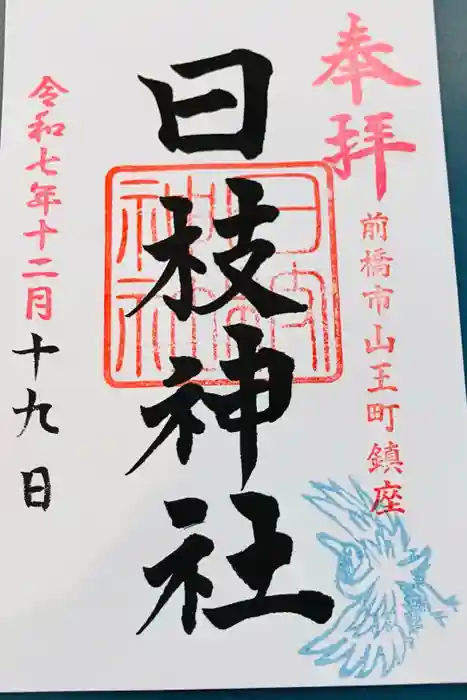 奉拝
前橋市山王町鎮座
日枝神社
令和七年十二月十九日